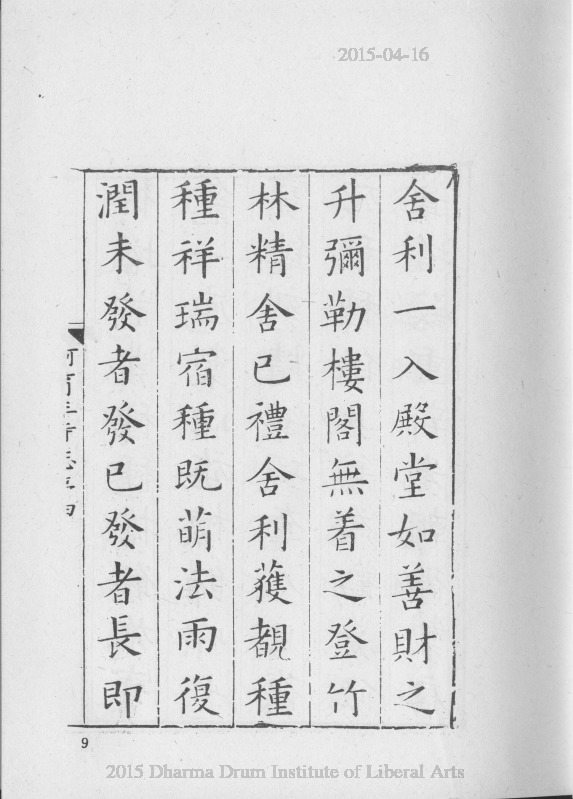 2015-04-16
舎利一入殿堂如善財之
升彌勒樓閣無着之登竹
林精舎已禮舎利蒦覩種
種祥瑞宿種既萌法雨復
潤未發者發已發者長即
9
2015 Dharma Drum Institute of Liberal Arts